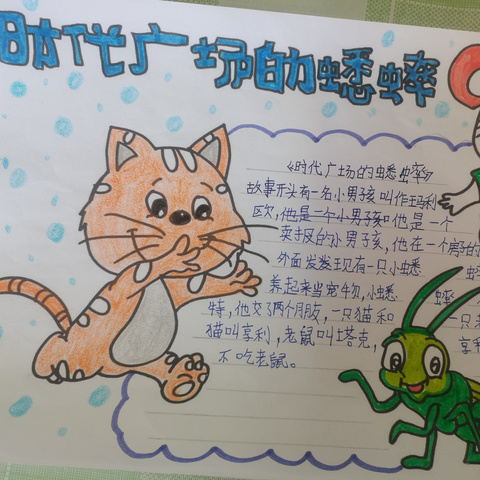 时代广场的蟋蟀
《时代广场的蟋蟀》
故事开头有一名小男孩叫作玛利
欧,他是一个小男孩和他是一个
卖报的小男孩,他在一个房子的
外面发现有一只小蟋 蟋
养起来当宠物,小蟋 蟀
特,他交了两个朋友,一只猫和 一只老
猫叫亨利,老鼠叫塔克, 亨利
不吃老鼠。